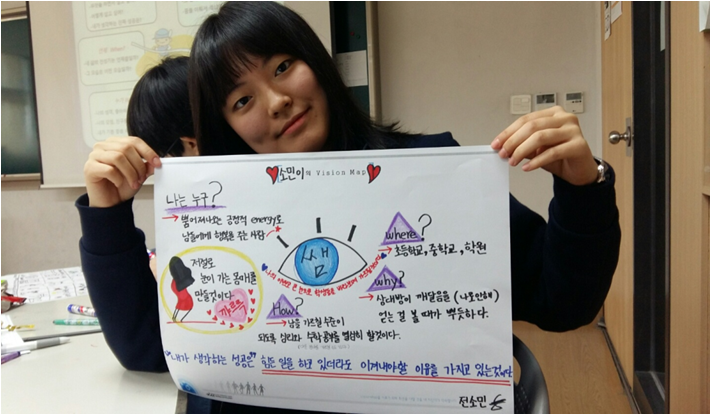 소민이의 Vision Map
나는 누구?
→ 뿜어져나오는 긍정적 energy로
남들에게 행복을 주는 사람
저절로
눈이 가는 몸매를
만들것이다
까르륵
쌤
where?
→ 초등학교, 중학교, 학원
why?
→ 상대방이 깨달음을 (나로인해)
얻는 걸 볼 때가 뿌듯하다.
How?
→ 남을 가르칠 수준이
되도록 심리와 수학 공부를 열심히 할것이다.
"내가 생각하는 성공은" 힘든 일을 하고 있더라도 이겨내야할 이유를 가지고 있는것이다
전소민